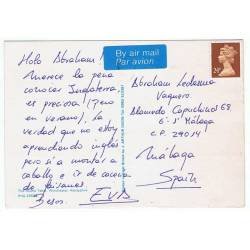 Hola Abraham!
Merece la pena
conocer Inglaterra,
es preciosa (pero
en verano), la
verdad que no estoy
aprendiendo inglés
pero sí a montar a
caballo e ir de cacería
de faisanes.
Besos.
EVA
By air mail
Par avion
Abraham Ledesma
Vaquero
Alameda Capuchinos 68,
6º Málaga
C.P. 29014
Málaga
Spain